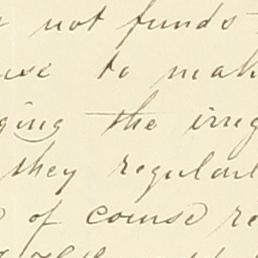 not funds
to mak
ging the irreg
they regularl
of course re